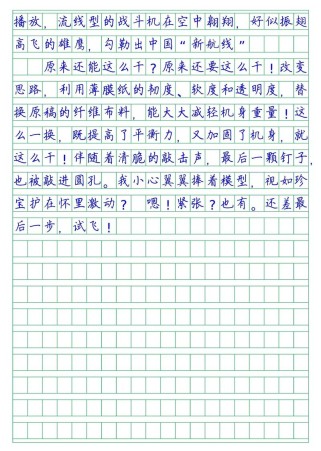 播放，流线型的战斗机在空中翱翔，好似振翅
高飞的雄鹰，勾勒出中国“新航线”
原来还能这么干？原来还要这么干！改变
思路，利用薄膜纸的韧度、软度和透明度，替
换原稿的纤维布料，能大大减轻机身重量！这
么一换，既提高了平衡力，又加固了机身，就
这么干！伴随着清脆的敲击声，最后一颗钉子，
也被敲进圆孔。我小心翼翼捧着模型，视如珍
宝护在怀里激动？ 嗯！紧张？也有。还差最
后一步，试飞！